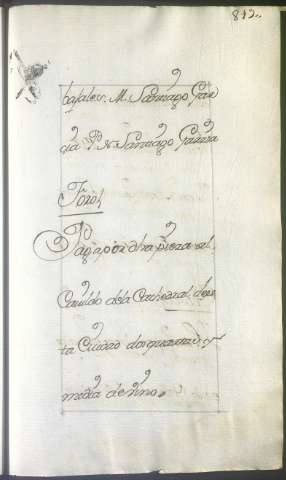 bajales. M. Santiago Gar
cia P. N. Santiago Garcia
Foxol
Paga por dha pieza al
Cavildo dela Cathedral de es
ta Ciudad dos quartas y
media de vino.